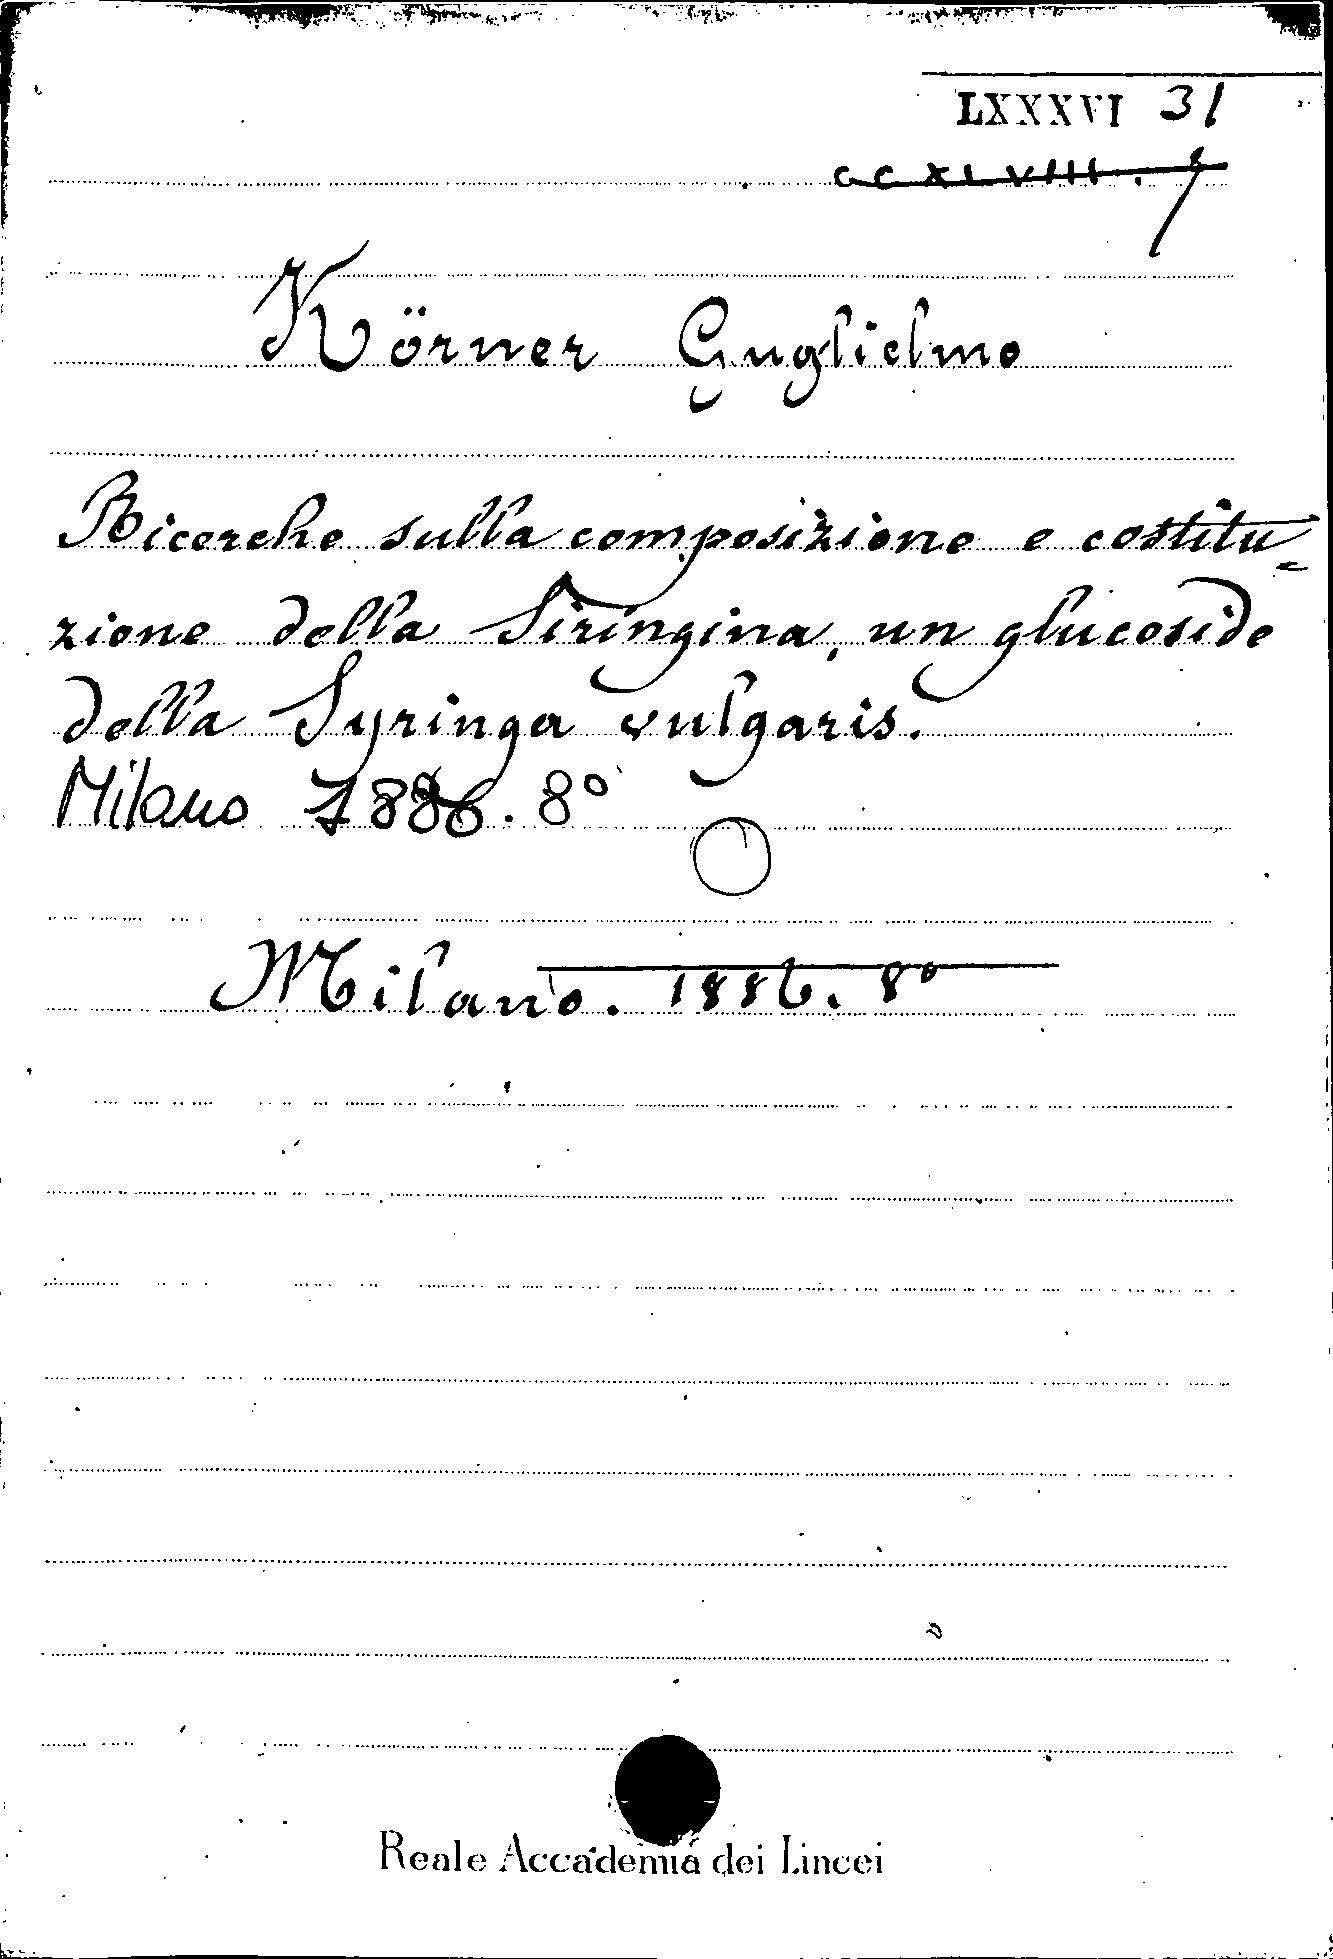 LXXXVI 31
CCXLVIII. 9
Körner Guglielmo
Ricerche sulla composizione e costitu=
zione della Siringina, un glucoside
della Syringa vulgaris.
Milano 1886. 8°
Milano. 1886. 8°
Reale Accademia dei Lincei